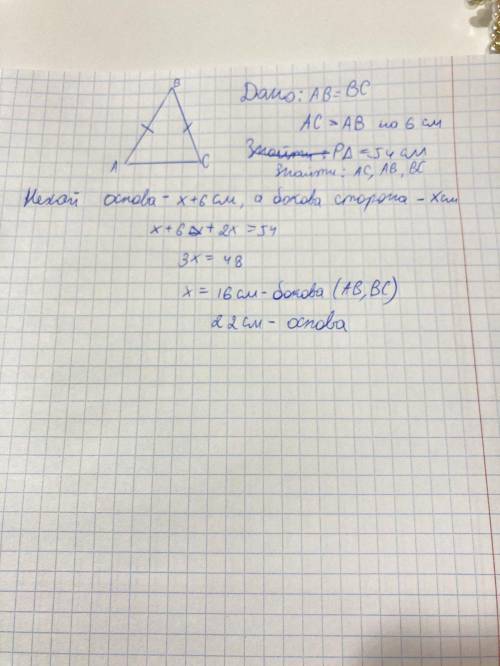 B
A
C
Дано: AB = BC
AC > AB на 6 см
PΔ = 54 см
Знайти: AC, AB, BC
Нехай основа - x+6 см, а бокова сторона - x см
x+6+2x=54
3x = 48
x = 16 см - бокова (AB, BC)
22 см - основа